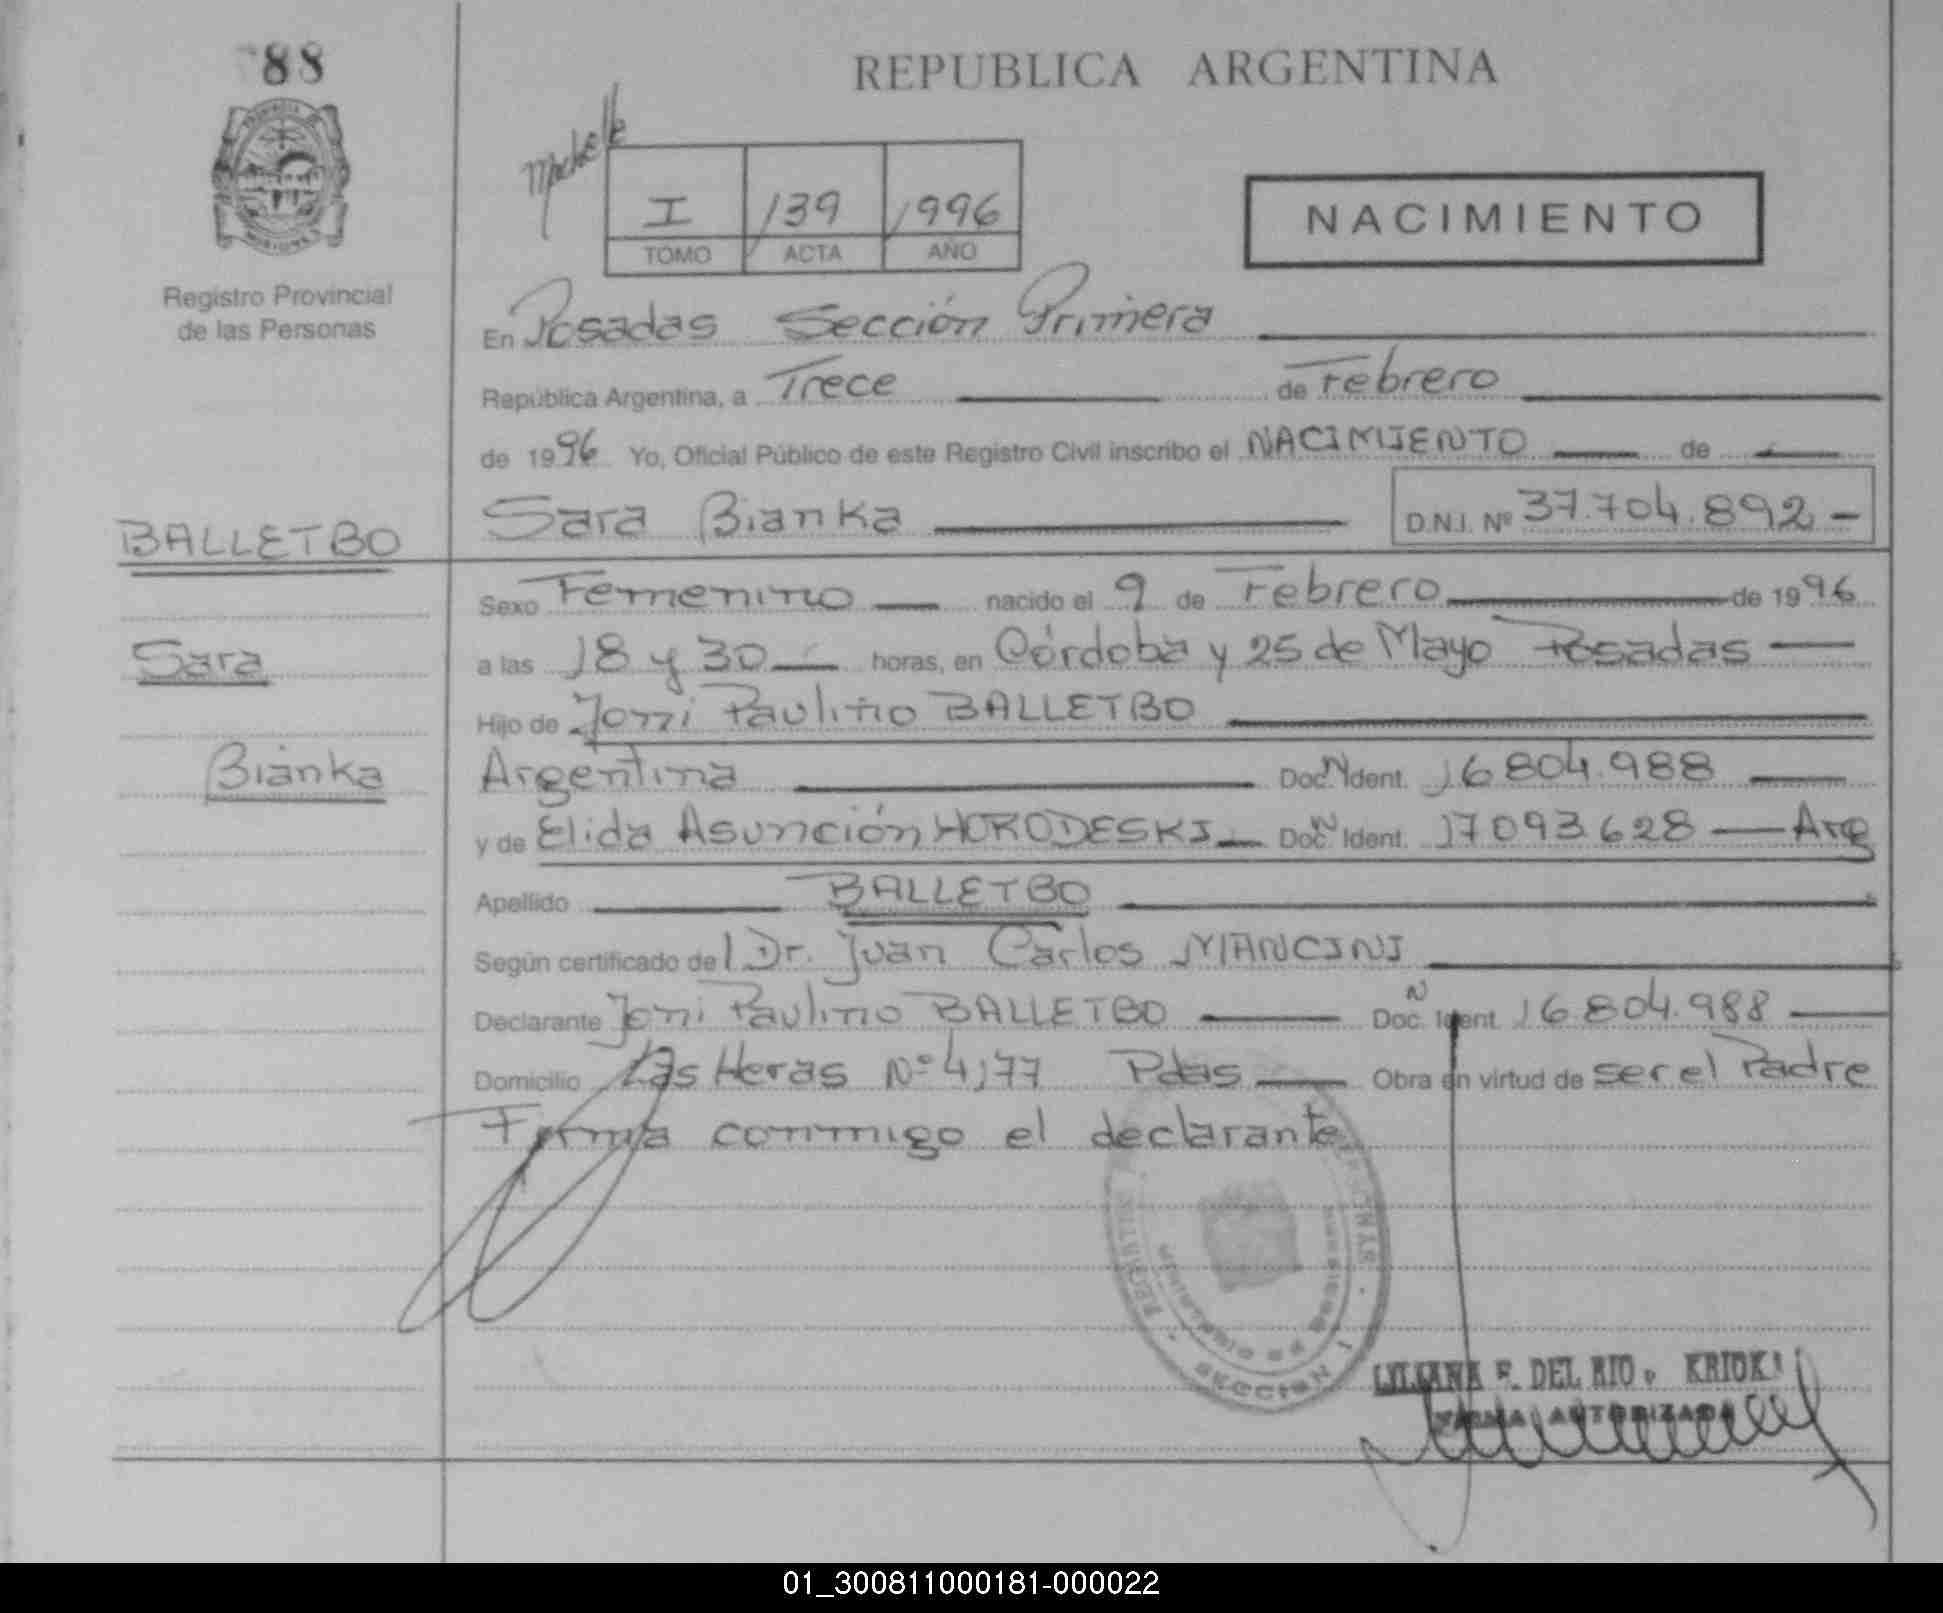 88
REPUBLICA ARGENTINA
Michelle
I 139 1996
TOMO ACTA AÑO
NACIMIENTO
Registro Provincial
de las Personas
En Posadas Sección Primera
República Argentina, a Trece de Febrero
de 1996 Yo, Oficial Público de este Registro Civil inscribo el NACIMIENTO de
BALLETBO
Sara Bianka D.N.I. Nº 37.704.892 -
Sexo Femenino nacido el 9 de Febrero de 1996
Sara
a las 18 y 30 horas, en Córdoba y 25 de Mayo Posadas
Hijo de Jorri Paulino BALLETBO
Bianka
Argentina Doc. N Ident. 16804.988
y de Elida Asunción HORODESKI Doc. N Ident. 17093.628 Arg
Apellido BALLETBO
Según certificado del Dr. Juan Carlos MANCINI
Declarante Jorri Paulino BALLETBO Doc. N Ident. 16.804.988
Domicilio Las Heras Nº 4177 Pdas Obra en virtud de ser el Padre
Firma conmigo el declarante
SECCION 1
LILIANA F. DEL RIO
FIRMA AUTORIZADA
01_300811000181-000022